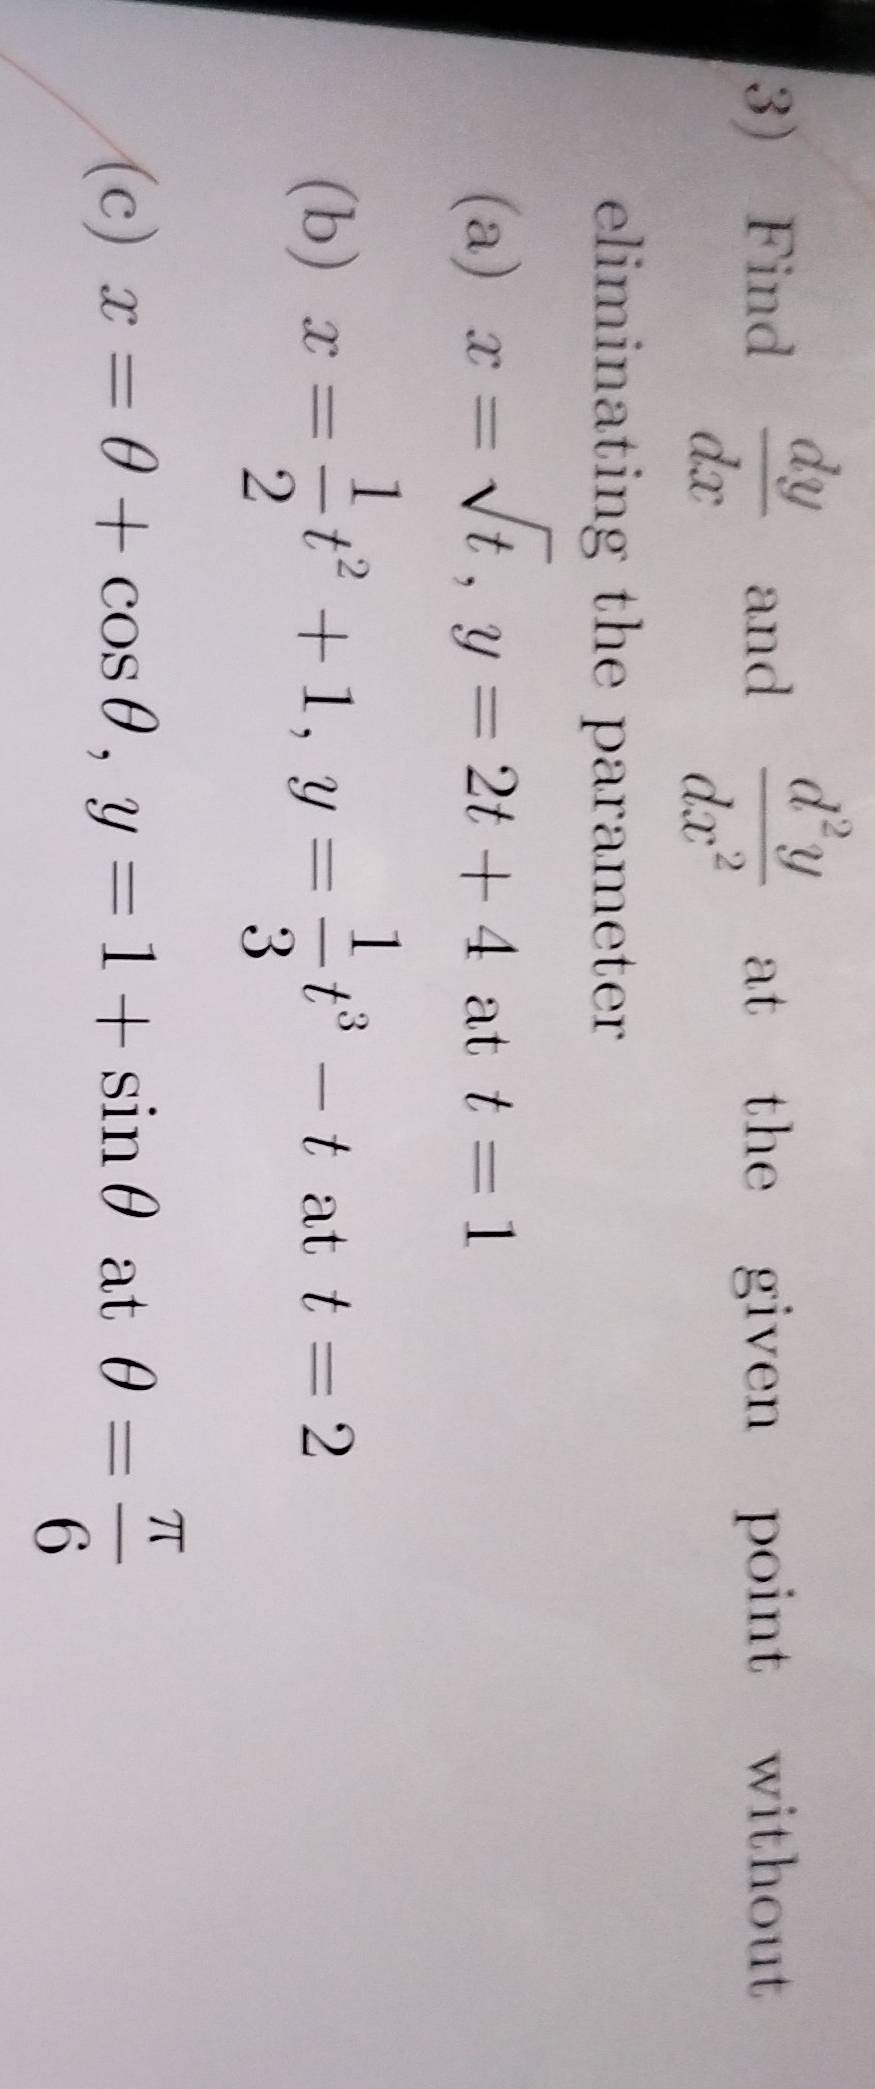 3) Find dy/dx and d²y/dx² at the given point without
eliminating the parameter
(a) x = √t, y = 2t + 4 at t = 1
(b) x = 1/2 t² + 1, y = 1/3 t³ − t at t = 2
(c) x = θ + cos θ, y = 1 + sin θ at θ = π/6